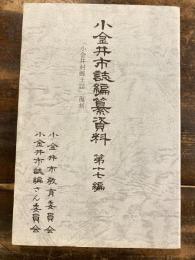 小金井市誌編纂資料 第十七編
「小金井村郷土誌」復刻
小金井市教育委員会
小金井市誌編さん委員会